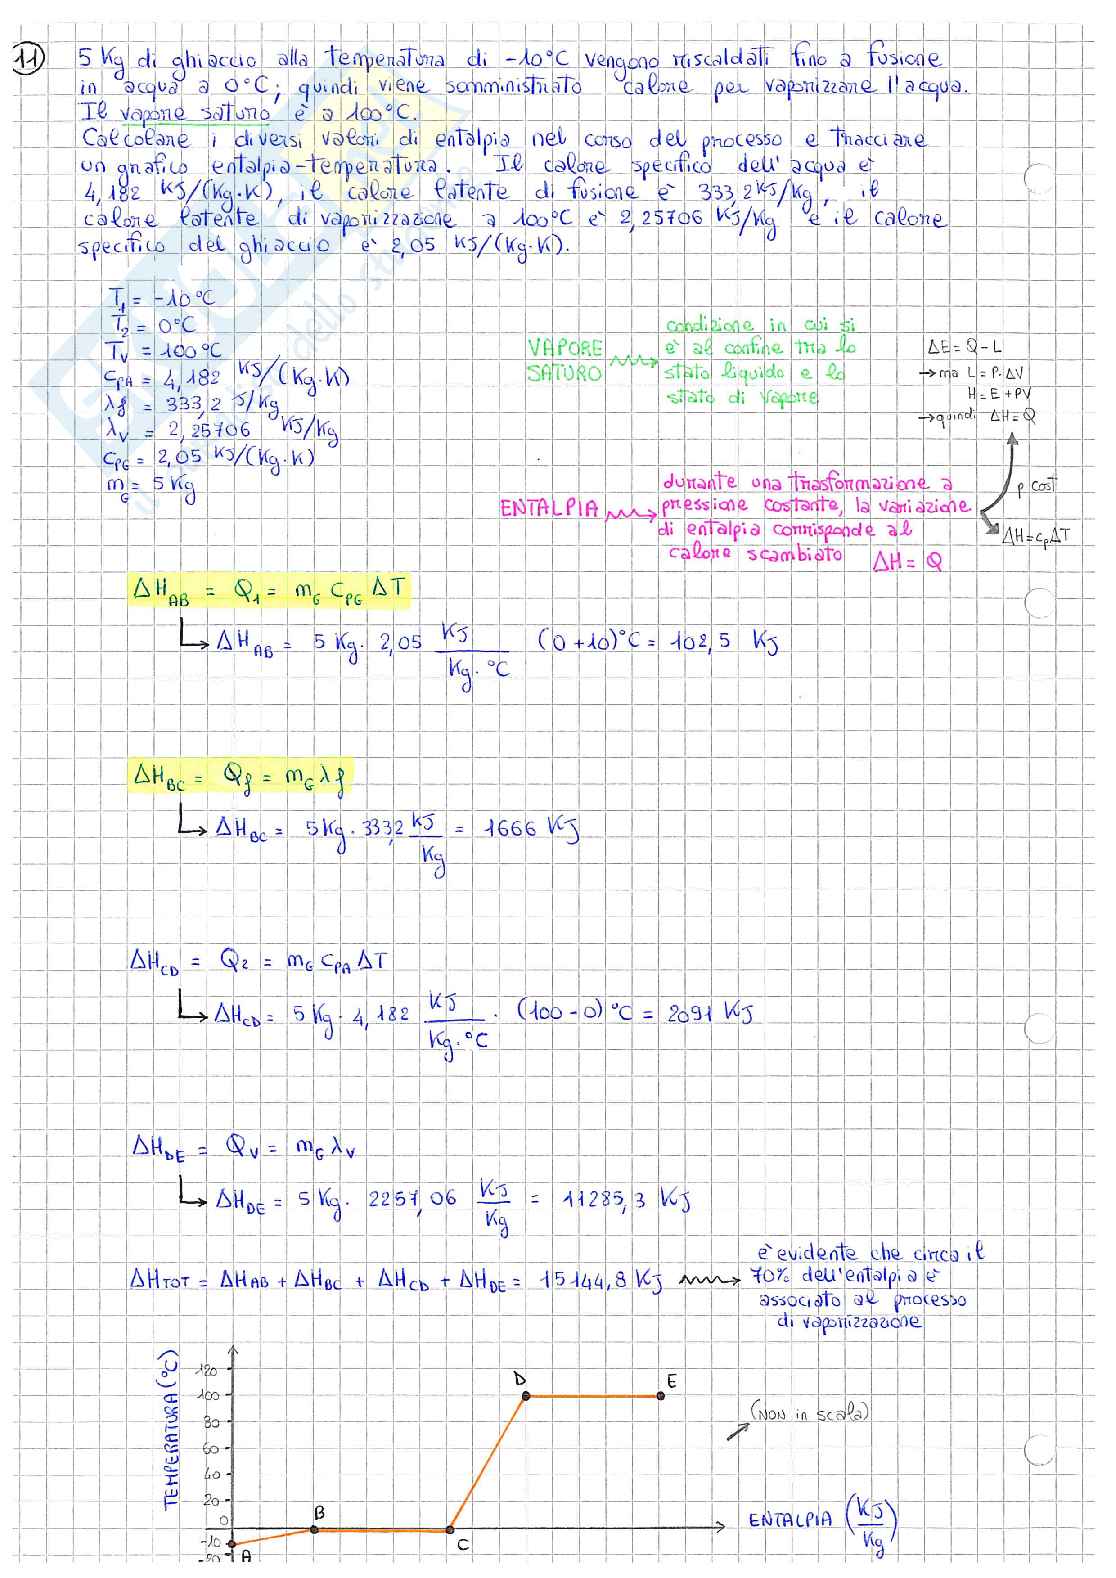 11
5 Kg di ghiaccio alla temperatura di -10°C vengono riscaldati fino a fusione
in acqua a 0°C; quindi viene somministrato calore per vaporizzare l'acqua.
Il vapore saturo è a 100°C.
Calcolare i diversi valori di entalpia nel corso del processo e tracciare
un grafico entalpia-temperatura. Il calore specifico dell'acqua è
4,182 KJ/(Kg·K), il calore latente di fusione è 333,2 KJ/Kg, il
calore latente di vaporizzazione a 100°C è 2,25706 KJ/Kg e il calore
specifico del ghiaccio è 2,05 KJ/(Kg·K).
T1 = -10°C
T2 = 0°C
Tv = 100°C
CPA = 4,182 KJ/(Kg·K)
λf = 333,2 J/Kg
λv = 2,25706 KJ/Kg
CPG = 2,05 KJ/(Kg·K)
mG = 5 Kg
VAPORE
SATURO
condizione in cui si
è al confine tra lo
stato liquido e lo
stato di vapore
ΔE = Q - L
→ ma L = P·ΔV
H = E + PV
→ quindi ΔH = Q
p cost
ΔH = cp ΔT
ENTALPIA
durante una trasformazione a
pressione costante, la variazione
di entalpia corrisponde al
calore scambiato ΔH = Q
ΔHAB = Q1 = mG CPG ΔT
ΔHAB = 5 Kg · 2,05 KJ/Kg·°C (0+10)°C = 102,5 KJ
ΔHBC = Qf = mG λf
ΔHBC = 5 Kg · 333,2 KJ/Kg = 1666 KJ
ΔHCD = Q2 = mG CPA ΔT
ΔHCD = 5 Kg · 4,182 KJ/Kg·°C · (100-0)°C = 2091 KJ
ΔHDE = Qv = mG λv
ΔHDE = 5 Kg · 2257,06 KJ/Kg = 11285,3 KJ
ΔHTOT = ΔHAB + ΔHBC + ΔHCD + ΔHDE = 15144,8 KJ
è evidente che circa il
70% dell'entalpia è
associato al processo
di vaporizzazione
TEMPERATURA (°C)
120
100
80
60
40
20
0
-10
-20
A
B
C
D
E
(NON in scala)
ENTALPIA (KJ/Kg)